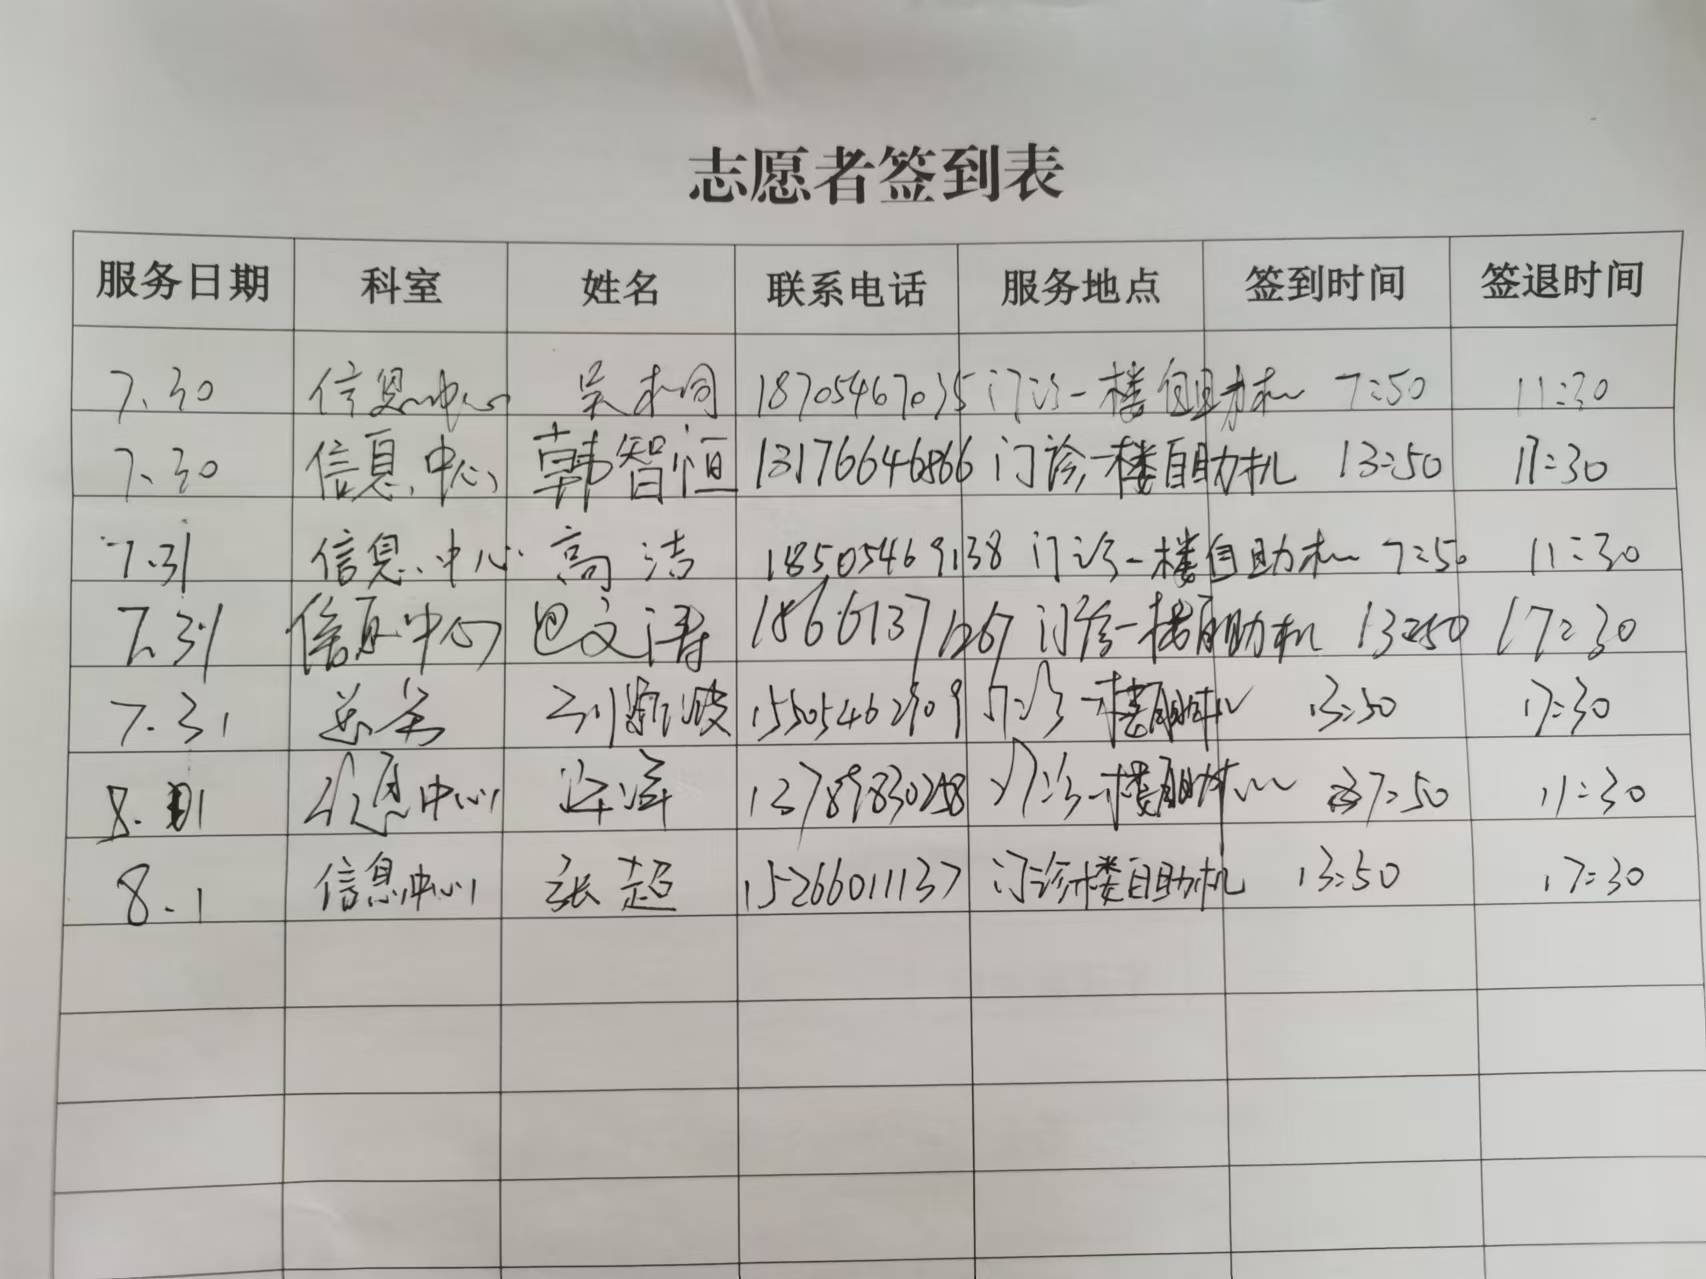 志愿者签到表
服务日期 科室 姓名 联系电话 服务地点 签到时间 签退时间
7.30 信息中心 吴木同 18705467035 门诊一楼自助机 7:50 11:30
7.30 信息中心 韩智恒 13176646866 门诊一楼自助机 13:50 17:30
7.31 信息中心 高洁 18505469138 门诊一楼自助机 7:50 11:30
7.31 信息中心 巴文涛 18661371267 门诊一楼自助机 13:50 17:30
7.31 15505462909 门诊一楼自助机 13:50 17:30
8.1 信息中心 13789830258 门诊一楼自助机 7:50 11:30
8.1 信息中心 张超 15266011137 门诊楼自助机 13:50 17:30